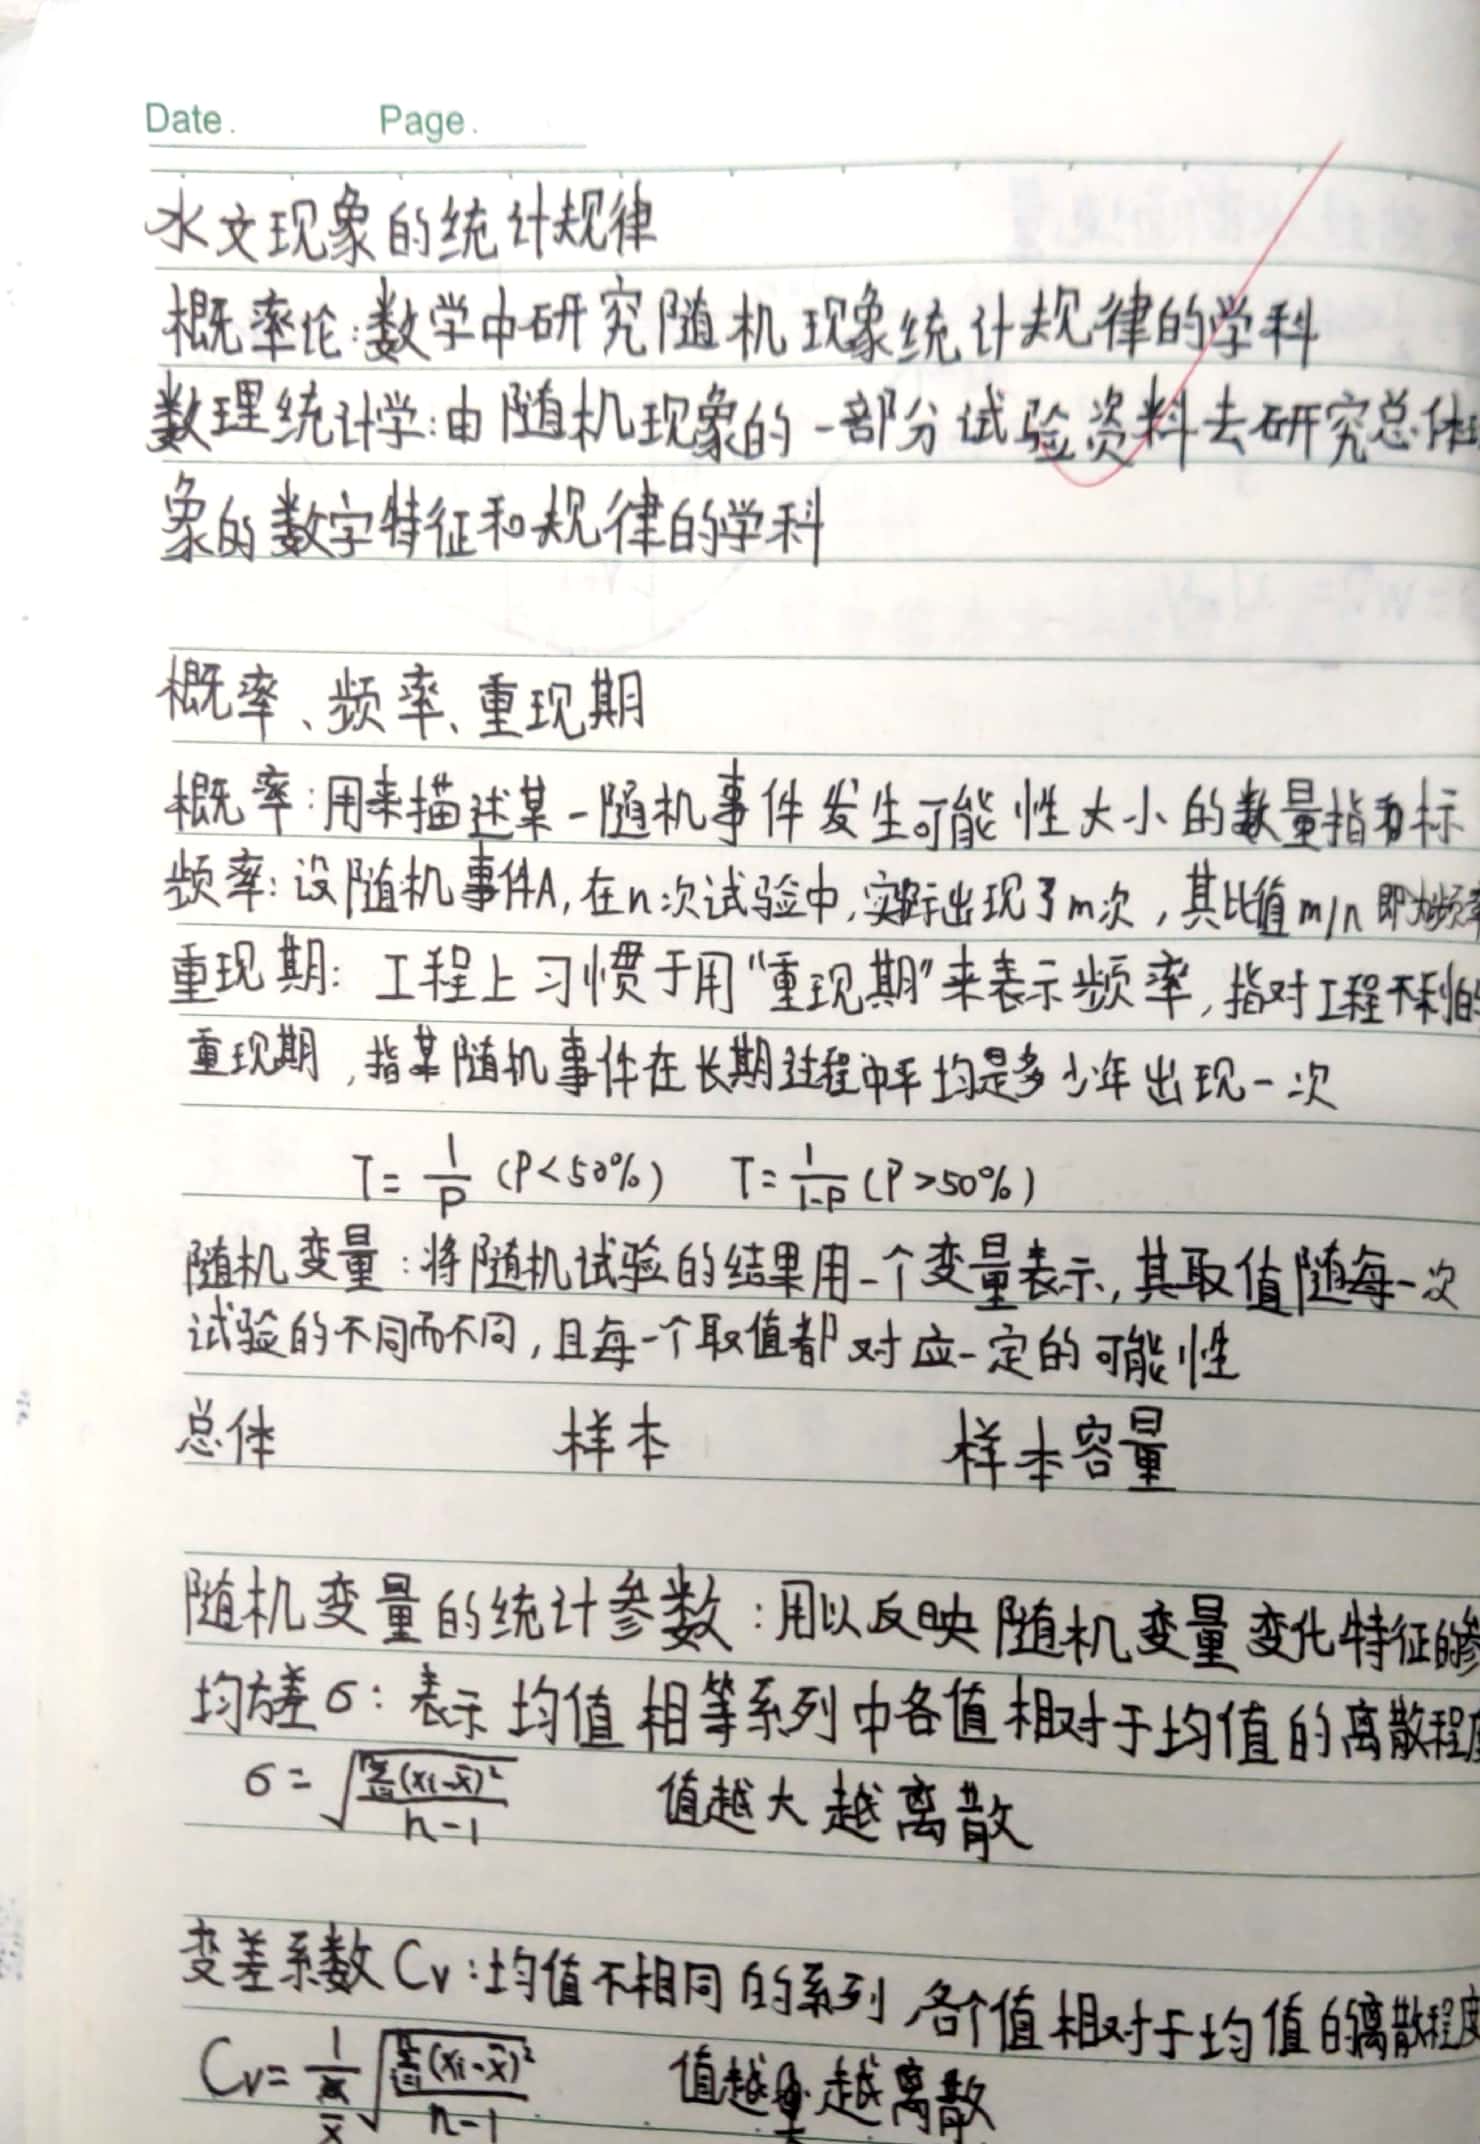 Date.  Page.
水文现象的统计规律
概率论:数学中研究随机现象统计规律的学科
数理统计学:由随机现象的一部分试验资料去研究总体现
象的数字特征和规律的学科
概率、频率、重现期
概率:用来描述某一随机事件发生可能性大小的数量指标
频率:设随机事件A,在n次试验中,实际出现了m次,其比值m/n即为频率
重现期:工程上习惯于用“重现期”来表示频率,指对工程不利的
重现期,指某随机事件在长期过程中平均是多少年出现一次
T=1/P (P<50%)  T=1/(1-P) (P>50%)
随机变量:将随机试验的结果用一个变量表示,其取值随每一次
试验的不同而不同,且每一个取值都对应一定的可能性
总体  样本  样本容量
随机变量的统计参数:用以反映随机变量变化特征的参
均方差σ:表示均值相等系列中各值相对于均值的离散程度
σ=√(Σ(xi-x̄)²/(n-1))  值越大越离散
变差系数Cv:均值不相同的系列各个值相对于均值的离散程度
Cv=1/x̄ √(Σ(xi-x̄)²/(n-1))  值越 越离散